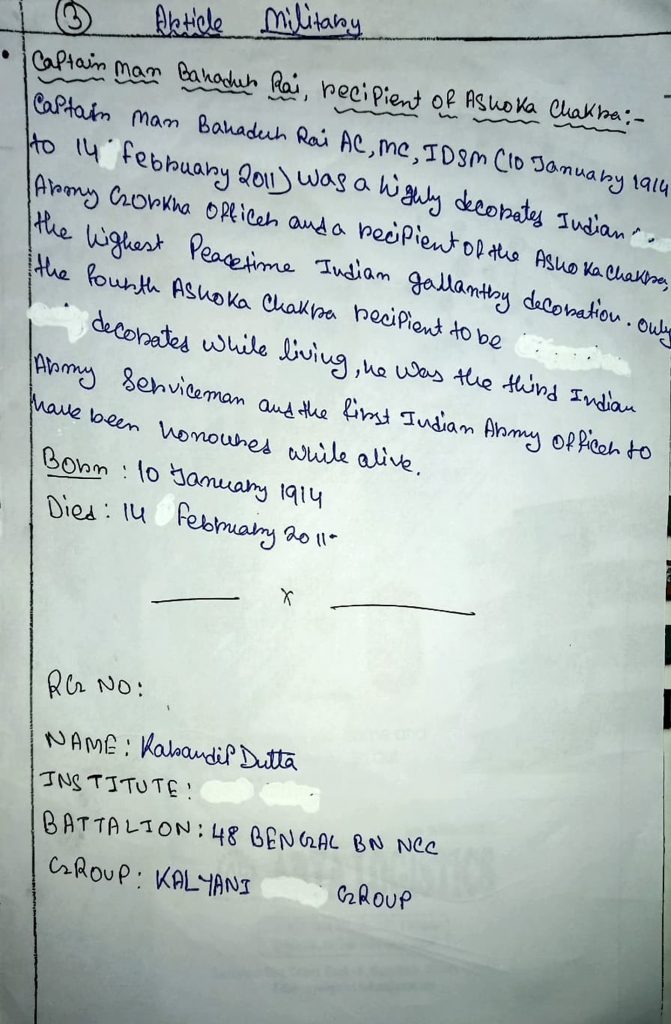 3 Article Military
Captain Man Bahadur Rai, recipient of Ashoka Chakra:-
Captain Man Bahadur Rai AC, MC, IDSM (10 January 1914
to 14 february 2011) was a highly decorates Indian
Army Gorkha Officer and a recipient of the Ashoka Chakra,
the highest Peacetime Indian gallantry decoration. only
the fourth Ashoka Chakra recipient to be
decorates while living, he was the third Indian
Army Serviceman and the first Indian Army Officer to
have been honoures while alive.
Born : 10 January 1914
Died : 14 february 2011-
x
RG NO:
NAME: Rabandip Dutta
INSTITUTE:
BATTALION: 48 BENGAL BN NCC
GROUP: KALYANI GROUP